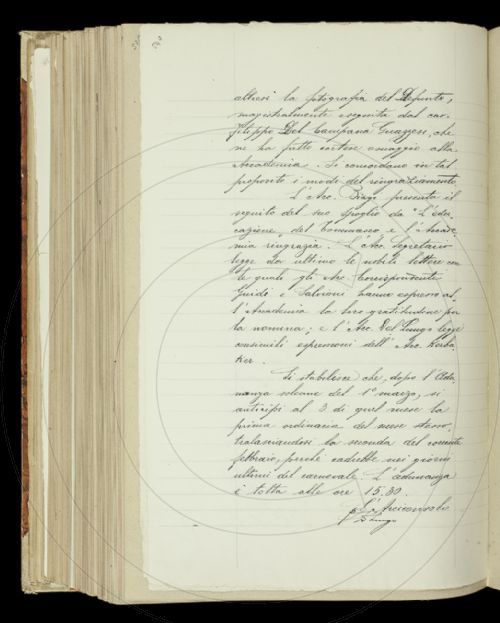 altresì la fotografia del Defunto,
magistralmente eseguita dal cav.
Filippo Del Campana Guazzesi, che
ne ha fatto cortese omaggio alla
Accademia. Si concordano in tal
proposito i modi del ringraziamento.
L'Arc. Biagi presenta il
seguito del suo spoglio da "L'edu-
cazione" del Tommaseo e l'Accade-
mia ringrazia. L'Arc. Segretario
legge da ultimo le nobili lettere con
le quali gli Arc. Corrispondente
Guidi e Salvioni hanno espresso al-
l'Accademia la loro gratitudine per
la nomina; e l'Arc. Del Lungo legge
consimili espressioni dell'Arc. Kerba-
ker.
Si stabilisce che, dopo l'Adu-
nanza solenne del 1° marzo, si
anticipi al 3 di quel mese la
prima ordinaria del mese stesso,
tralasciandosi la seconda del corrente
febbraio, perché cadrebbe nei giorni
ultimi del carnevale. L'adunanza
è tolta alle ore 15.30.
L'Arciconsolo